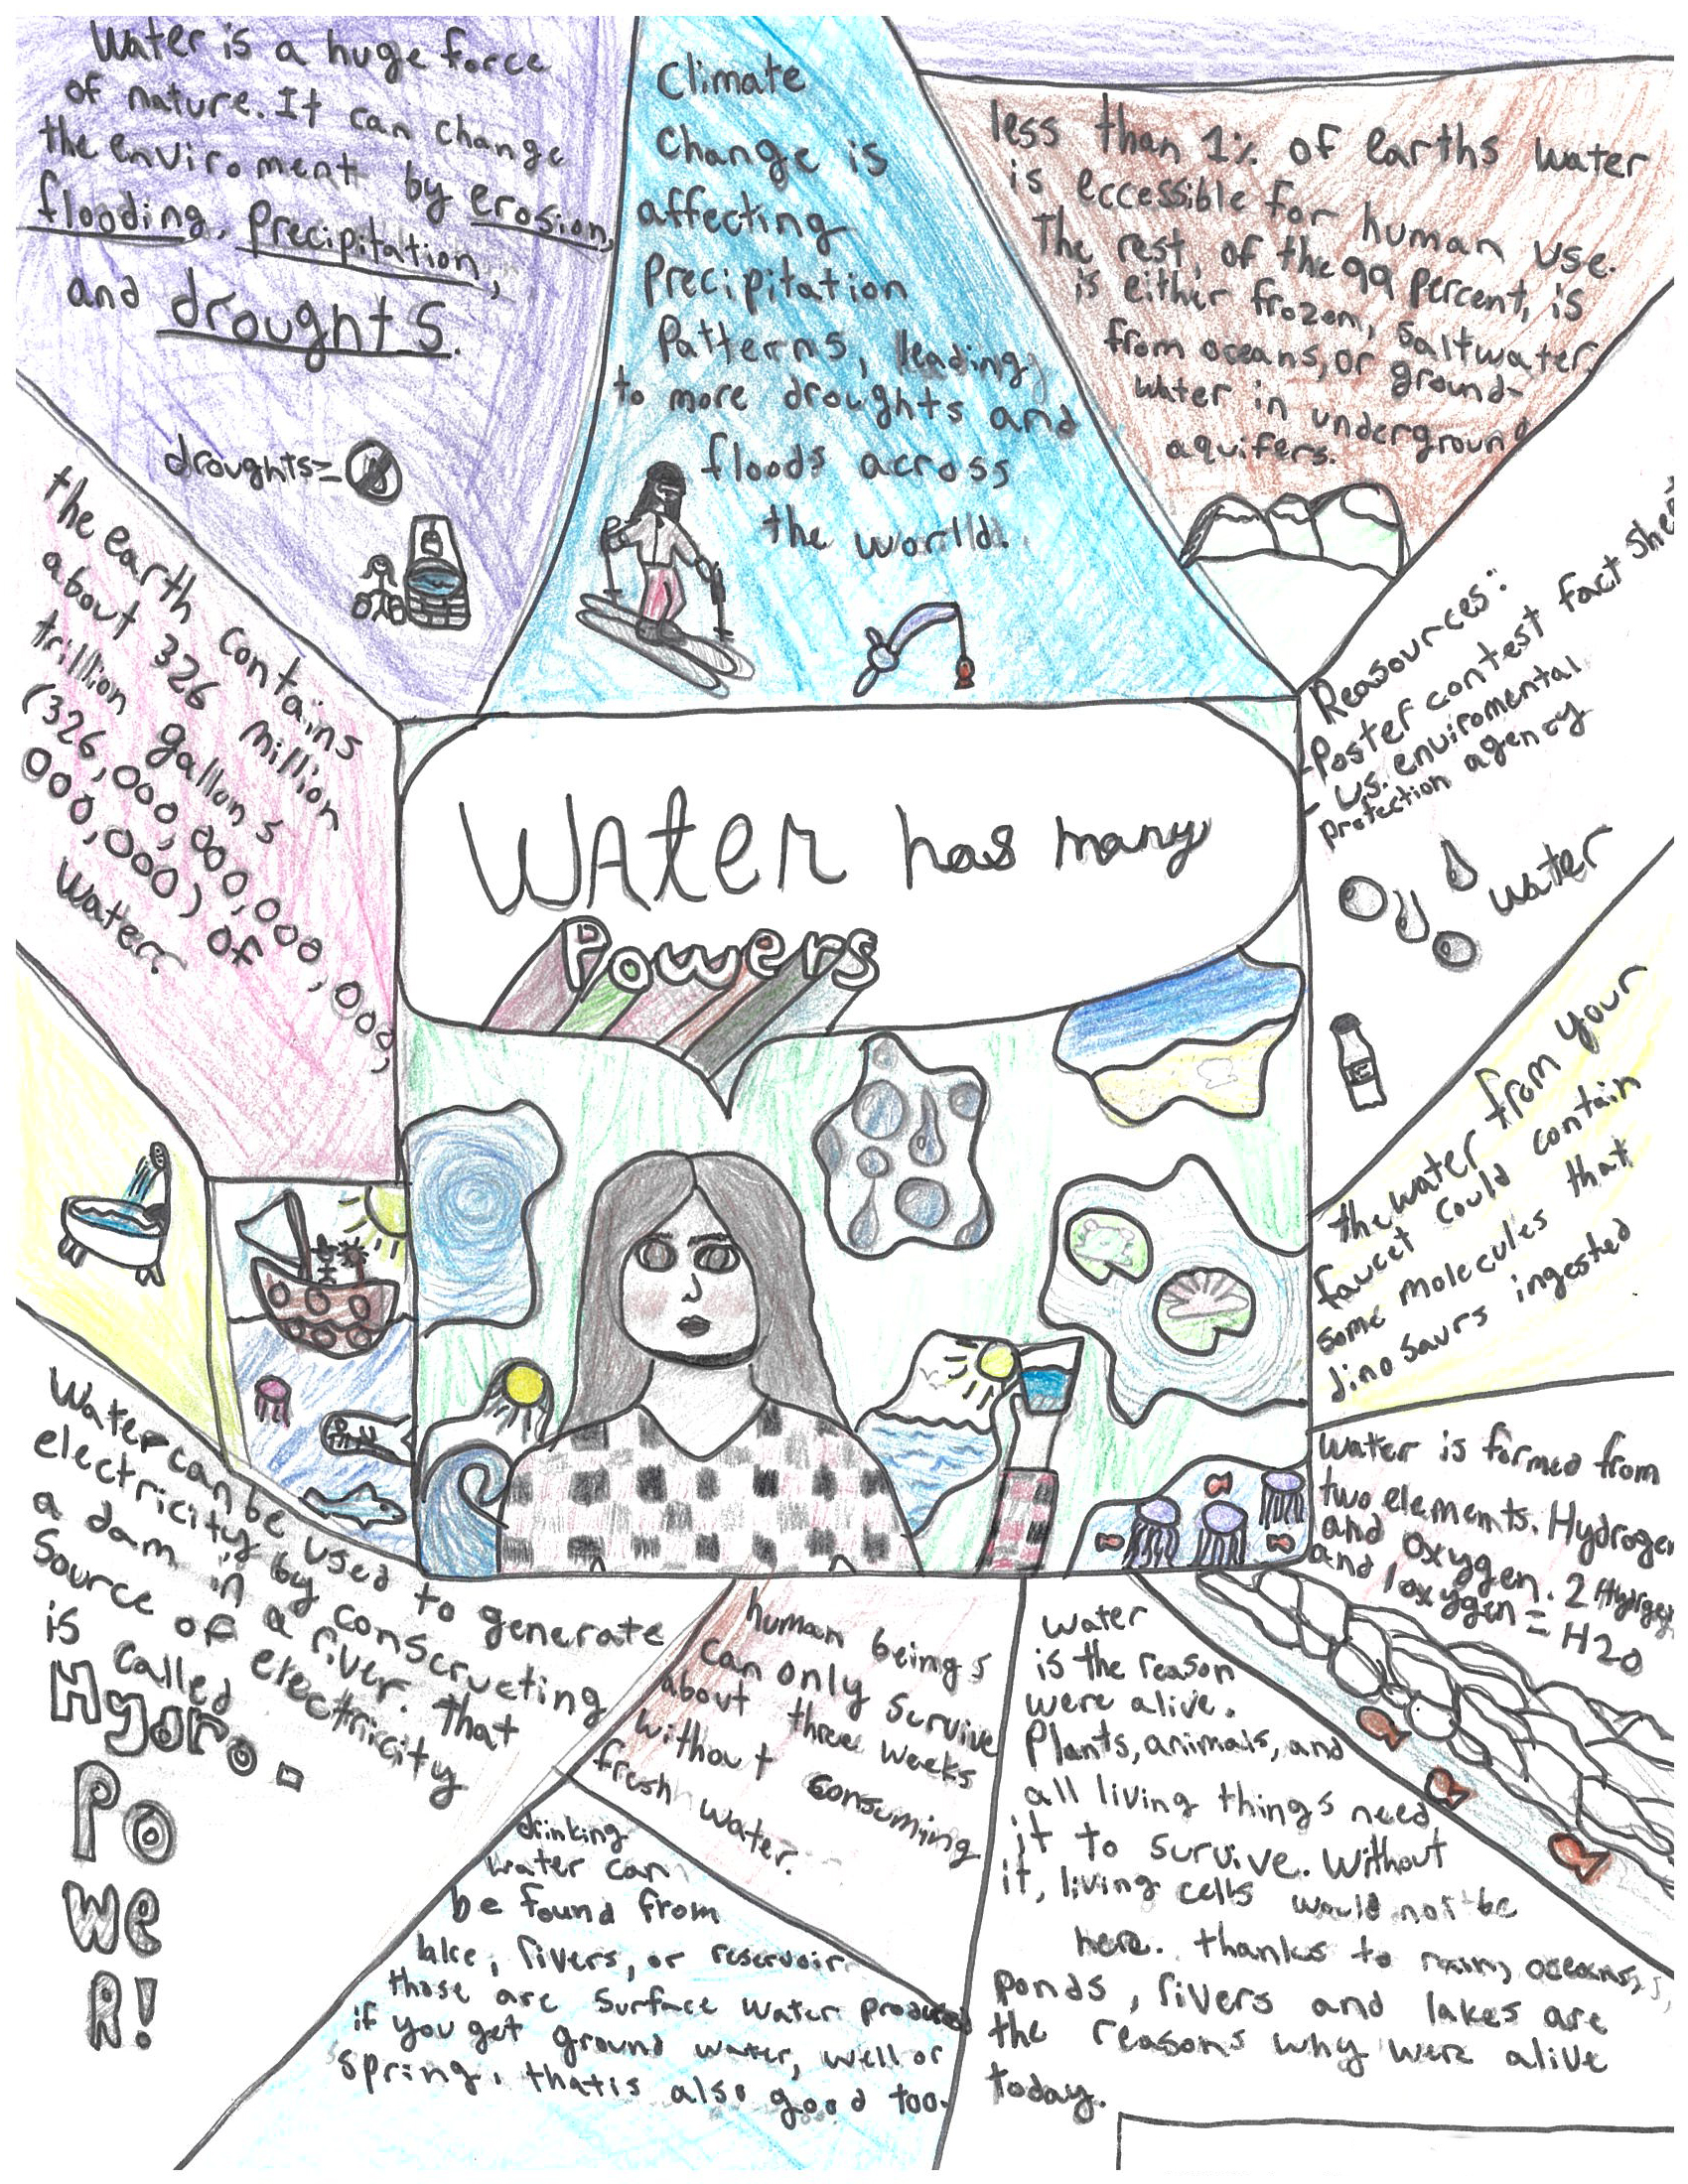 Water is a huge force
of nature. It can change
the enviroment by erosion,
flooding, Precipitation,
and droughts.
droughts=
Climate
change is
affecting
Precipitation
Patterns, leading
to more droughts and
floods across
the worlld.
less than 1% of earths water
is eccessible for human use.
The rest, of the 99 percent, is
is either frozen, saltwater
from oceans, or ground-
water in underground
aquifers.
Reasources:
-Poster contest fact sheet
- U.S. enviromental
protection agency
water
the earth contains
about 326 million
trillion gallons
(326,000,000,000,000,
000,000) of
water.
WAter has many
Powers
the water from your
faucet could contain
some molecules that
dinosaurs ingested
water is formed from
two elements. Hydrogen
and oxygen. 2 Hydrogen
and 1 oxygen = H2O
Water can be used to generate
electricity by conscructing
a dam in a river. That
source of electricity
is called
Hydro-
Po
we
R!
human beings
can only survive
about three weeks
without consuming
fresh water.
drinking
water can
be found from
lake, rivers, or reservoir
those are surface water
if you get ground water, well or
spring, that is also good too.
water
is the reason
were alive.
Plants, animals, and
all living things need
it to survive. Without
it, living cells would not be
here. thanks to rain, oceans,
ponds, rivers and lakes are
the reasons why were alive
today.